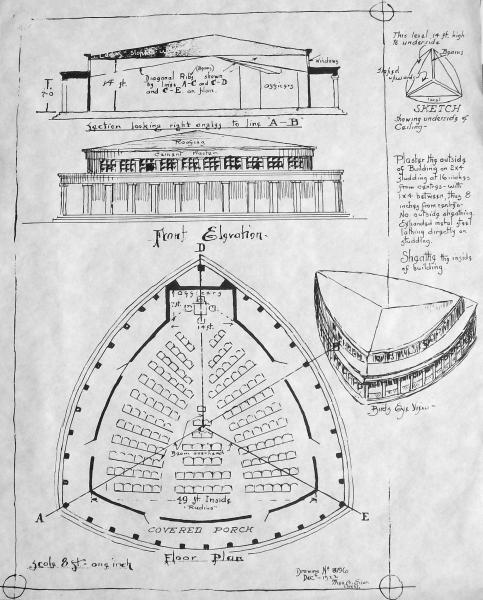 windows
(Beams)
14 ft.
Diagonal Ribs shown
by lines A-C and C-D
and C-E on plan.
Officers
Section looking right angles to line A-B
This level 14 ft. high
to underside
Beams
Sloped
upward
level
SKETCH
Showing underside of
Ceiling-
Roofing
Cement Plaster
Front Elevation-
Plaster the outside
of Building on 2x4
studding at 16 inches
from centres- with
1x4 between, thus 8
inches from centres-
No outside sheathing.
Expanded metal steel
lathing directly on
studding.
Sheath the inside
of building.
D
Officers
7 ft.
14 ft.
B
C
Beam overhead
49 ft Inside
"Radius"
A
E
COVERED PORCH
Floor Plan
Birds Eye View-
Scale 8 ft - one inch
Drawing No
Dec